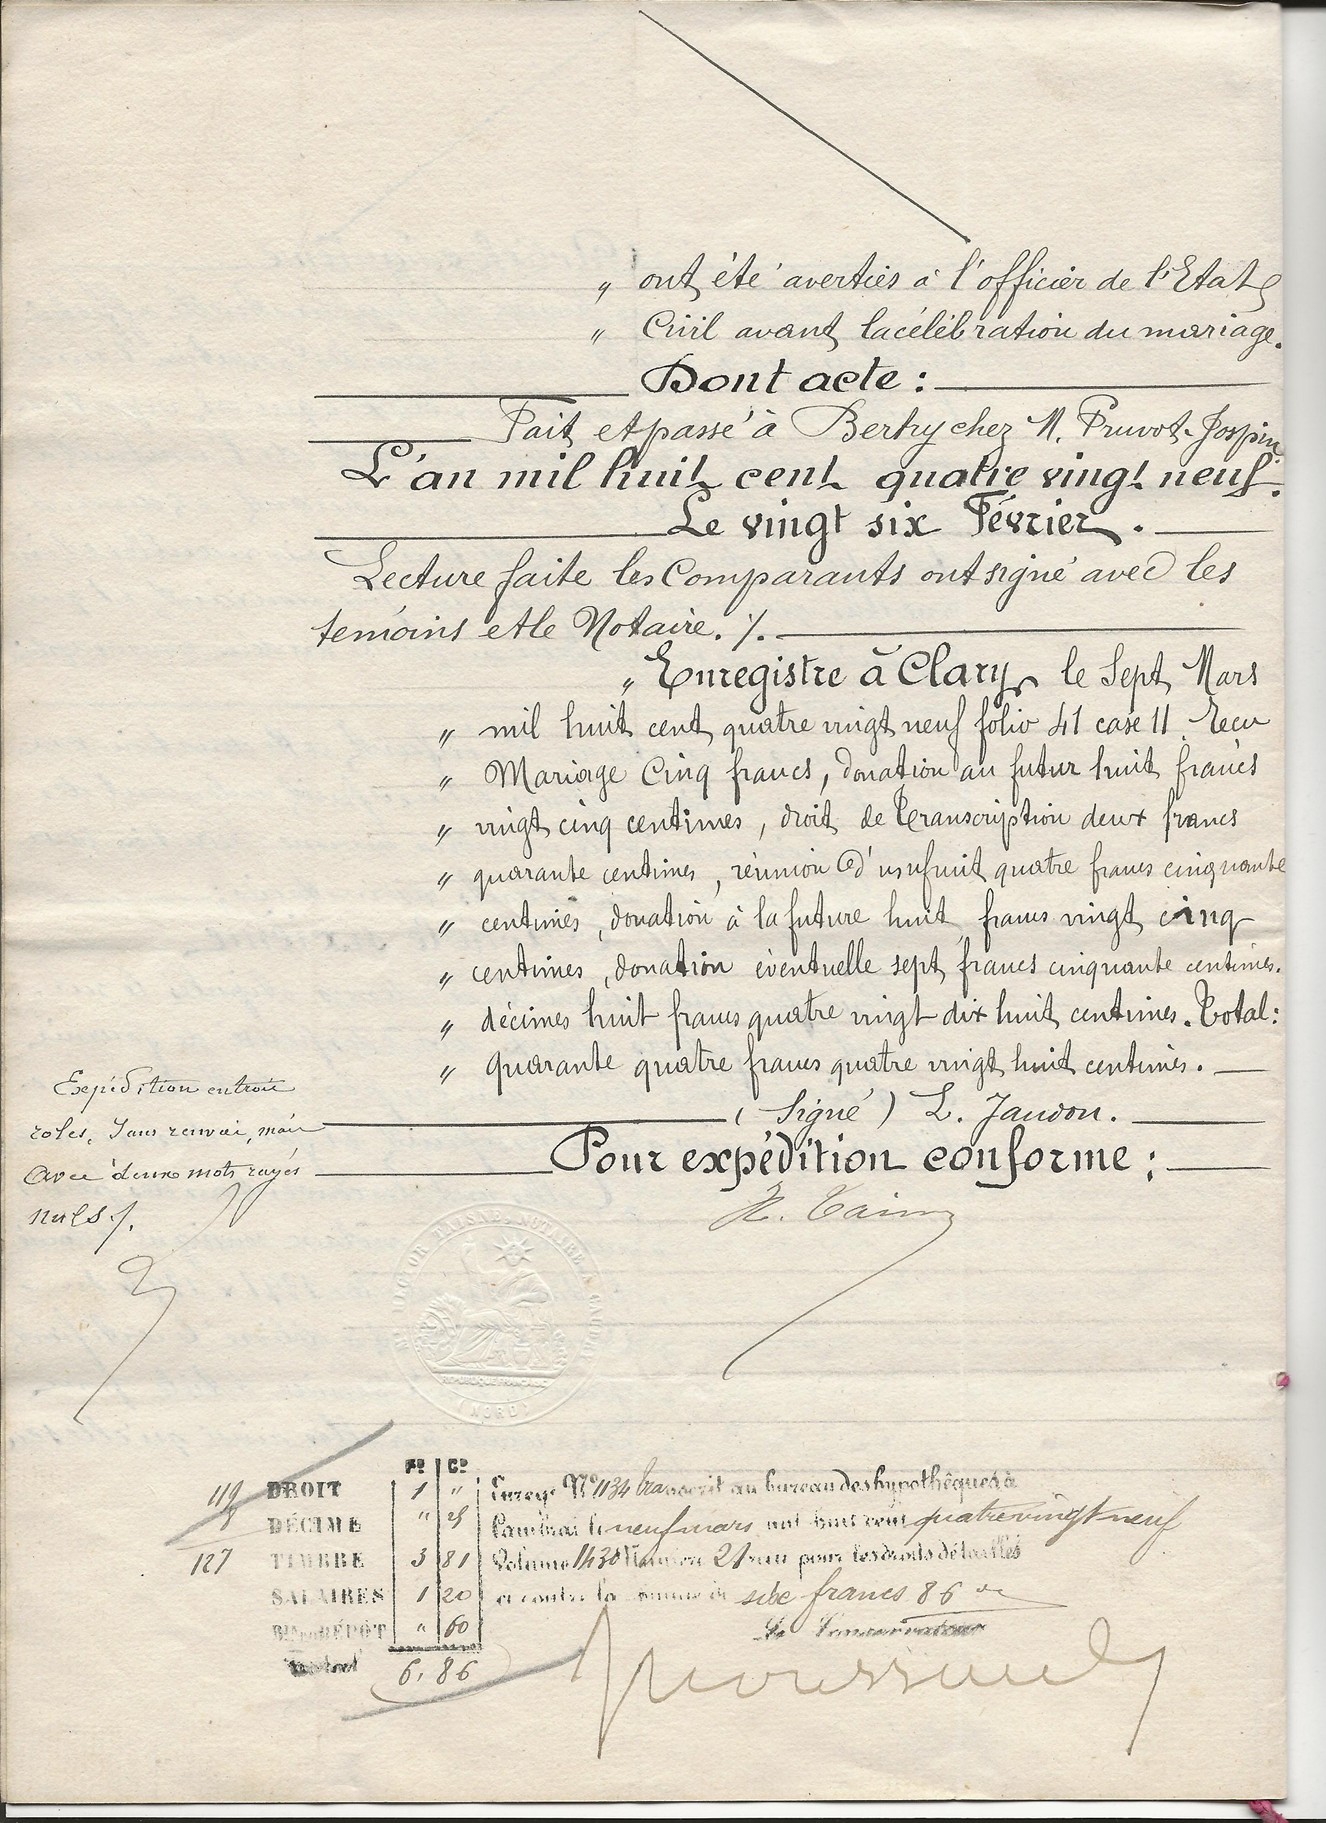 „ ont été avertiés à l'officier de l'Etat
„ Civil avant la célébration du mariage.
Dont acte :
Fait et passé à Bertry chez M. Pruvot-Jospin
L'an mil huit cent quatre vingt neuf.
Le vingt six Février.
Lecture faite les Comparants ont signé avec les
temoins et le Notaire. ./.
„ Enregistre à Clary, le Sept Mars
„ mil huit cent quatre vingt neuf folio 41 case 11. Recu
„ Mariage Cinq francs, donation au futur huit francs
„ vingt cinq centimes, droit de Transcription deux francs
„ quarante centimes, réunion d'usufruit quatre francs cinquante
„ centimes, donation à la future huit francs vingt cinq
„ centimes, donation éventuelle sept francs cinquante centimes.
„ décimes huit francs quatre vingt dix huit centimes. Total :
„ Quarante quatre francs quatre vingt huit centimes.
(Signé) L. Jaudon.
Pour expédition conforme :
Expédition en trois
roles, Sans renvoi, mais
Avec deux mots rayés
nuls ./.
TAISNE, NOTAIRE A
REPUBLIQUE FRANÇAISE
(NORD)
Fs Cs
119 DROIT 1 "
8 DÉCIME " 25
127 TIMBRE 3 81
SALAIRES 1 20
DÉPÔT " 60
6, 86
Enregé No 1134 transcrit au bureau des hypothèques à
Cambrai le neuf mars mil huit cent quatre vingt neuf
Volume 1430 Numéro 21 reçu pour les droits détaillés
ci contre la somme de six francs 86 cs
Le Conservateur